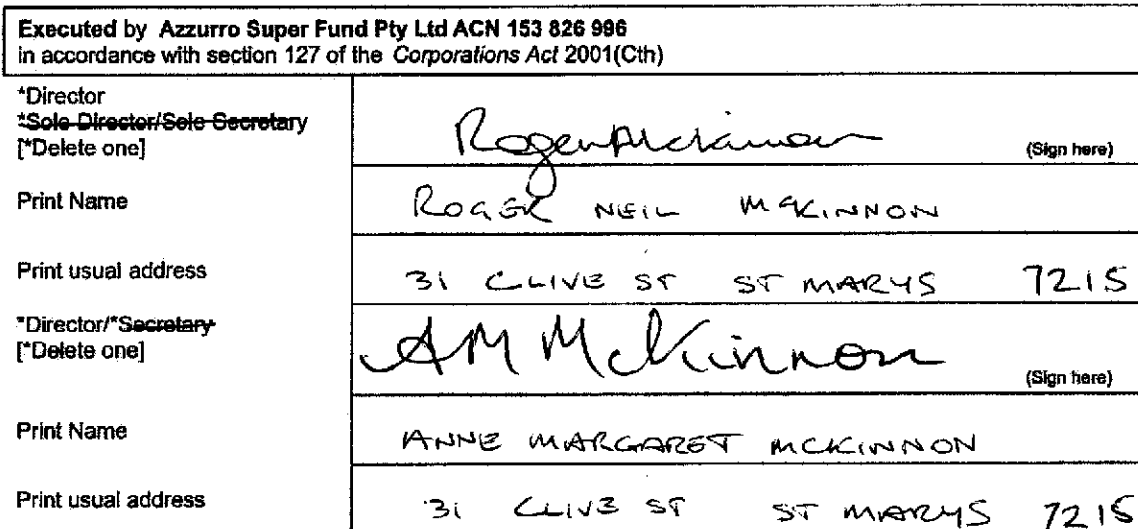 Executed by Azzurro Super Fund Pty Ltd ACN 153 826 996
in accordance with section 127 of the Corporations Act 2001(Cth)
*Director
*Sole Director/Sole Secretary
[*Delete one]
Roger McKinnon
(Sign here)
Print Name
ROGER NEIL McKINNON
Print usual address
31 CLIVE ST ST MARYS 7215
*Director/*Secretary
[*Delete one]
AM McKinnon
(Sign here)
Print Name
ANNE MARGARET MCKINNON
Print usual address
31 CLIVE ST ST MARYS 7215